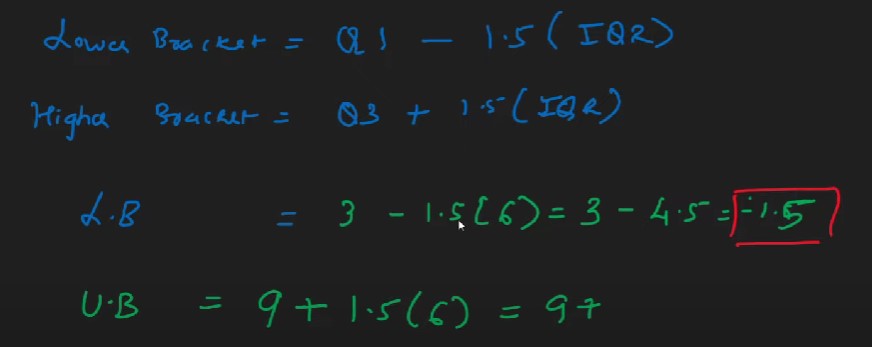 Lower Bracket = Q1 - 1.5(IQR)
Higher Bracket = Q3 + 1.5(IQR)
L.B = 3 - 1.5(6) = 3 - 4.5 = -1.5
U.B = 9 + 1.5(6) = 9+